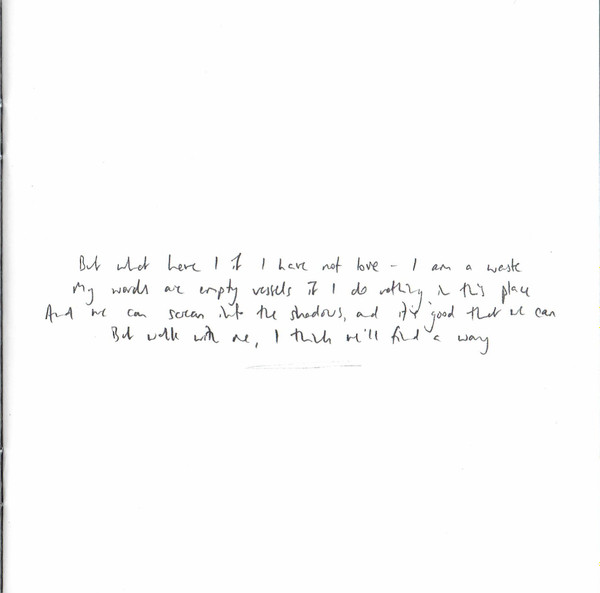 But what have I if I have not love - I am a waste
My words are empty vessels if I do nothing in this place
And we can scream into the shadows, and it's good that we can
But walk with me, I think we'll find a way